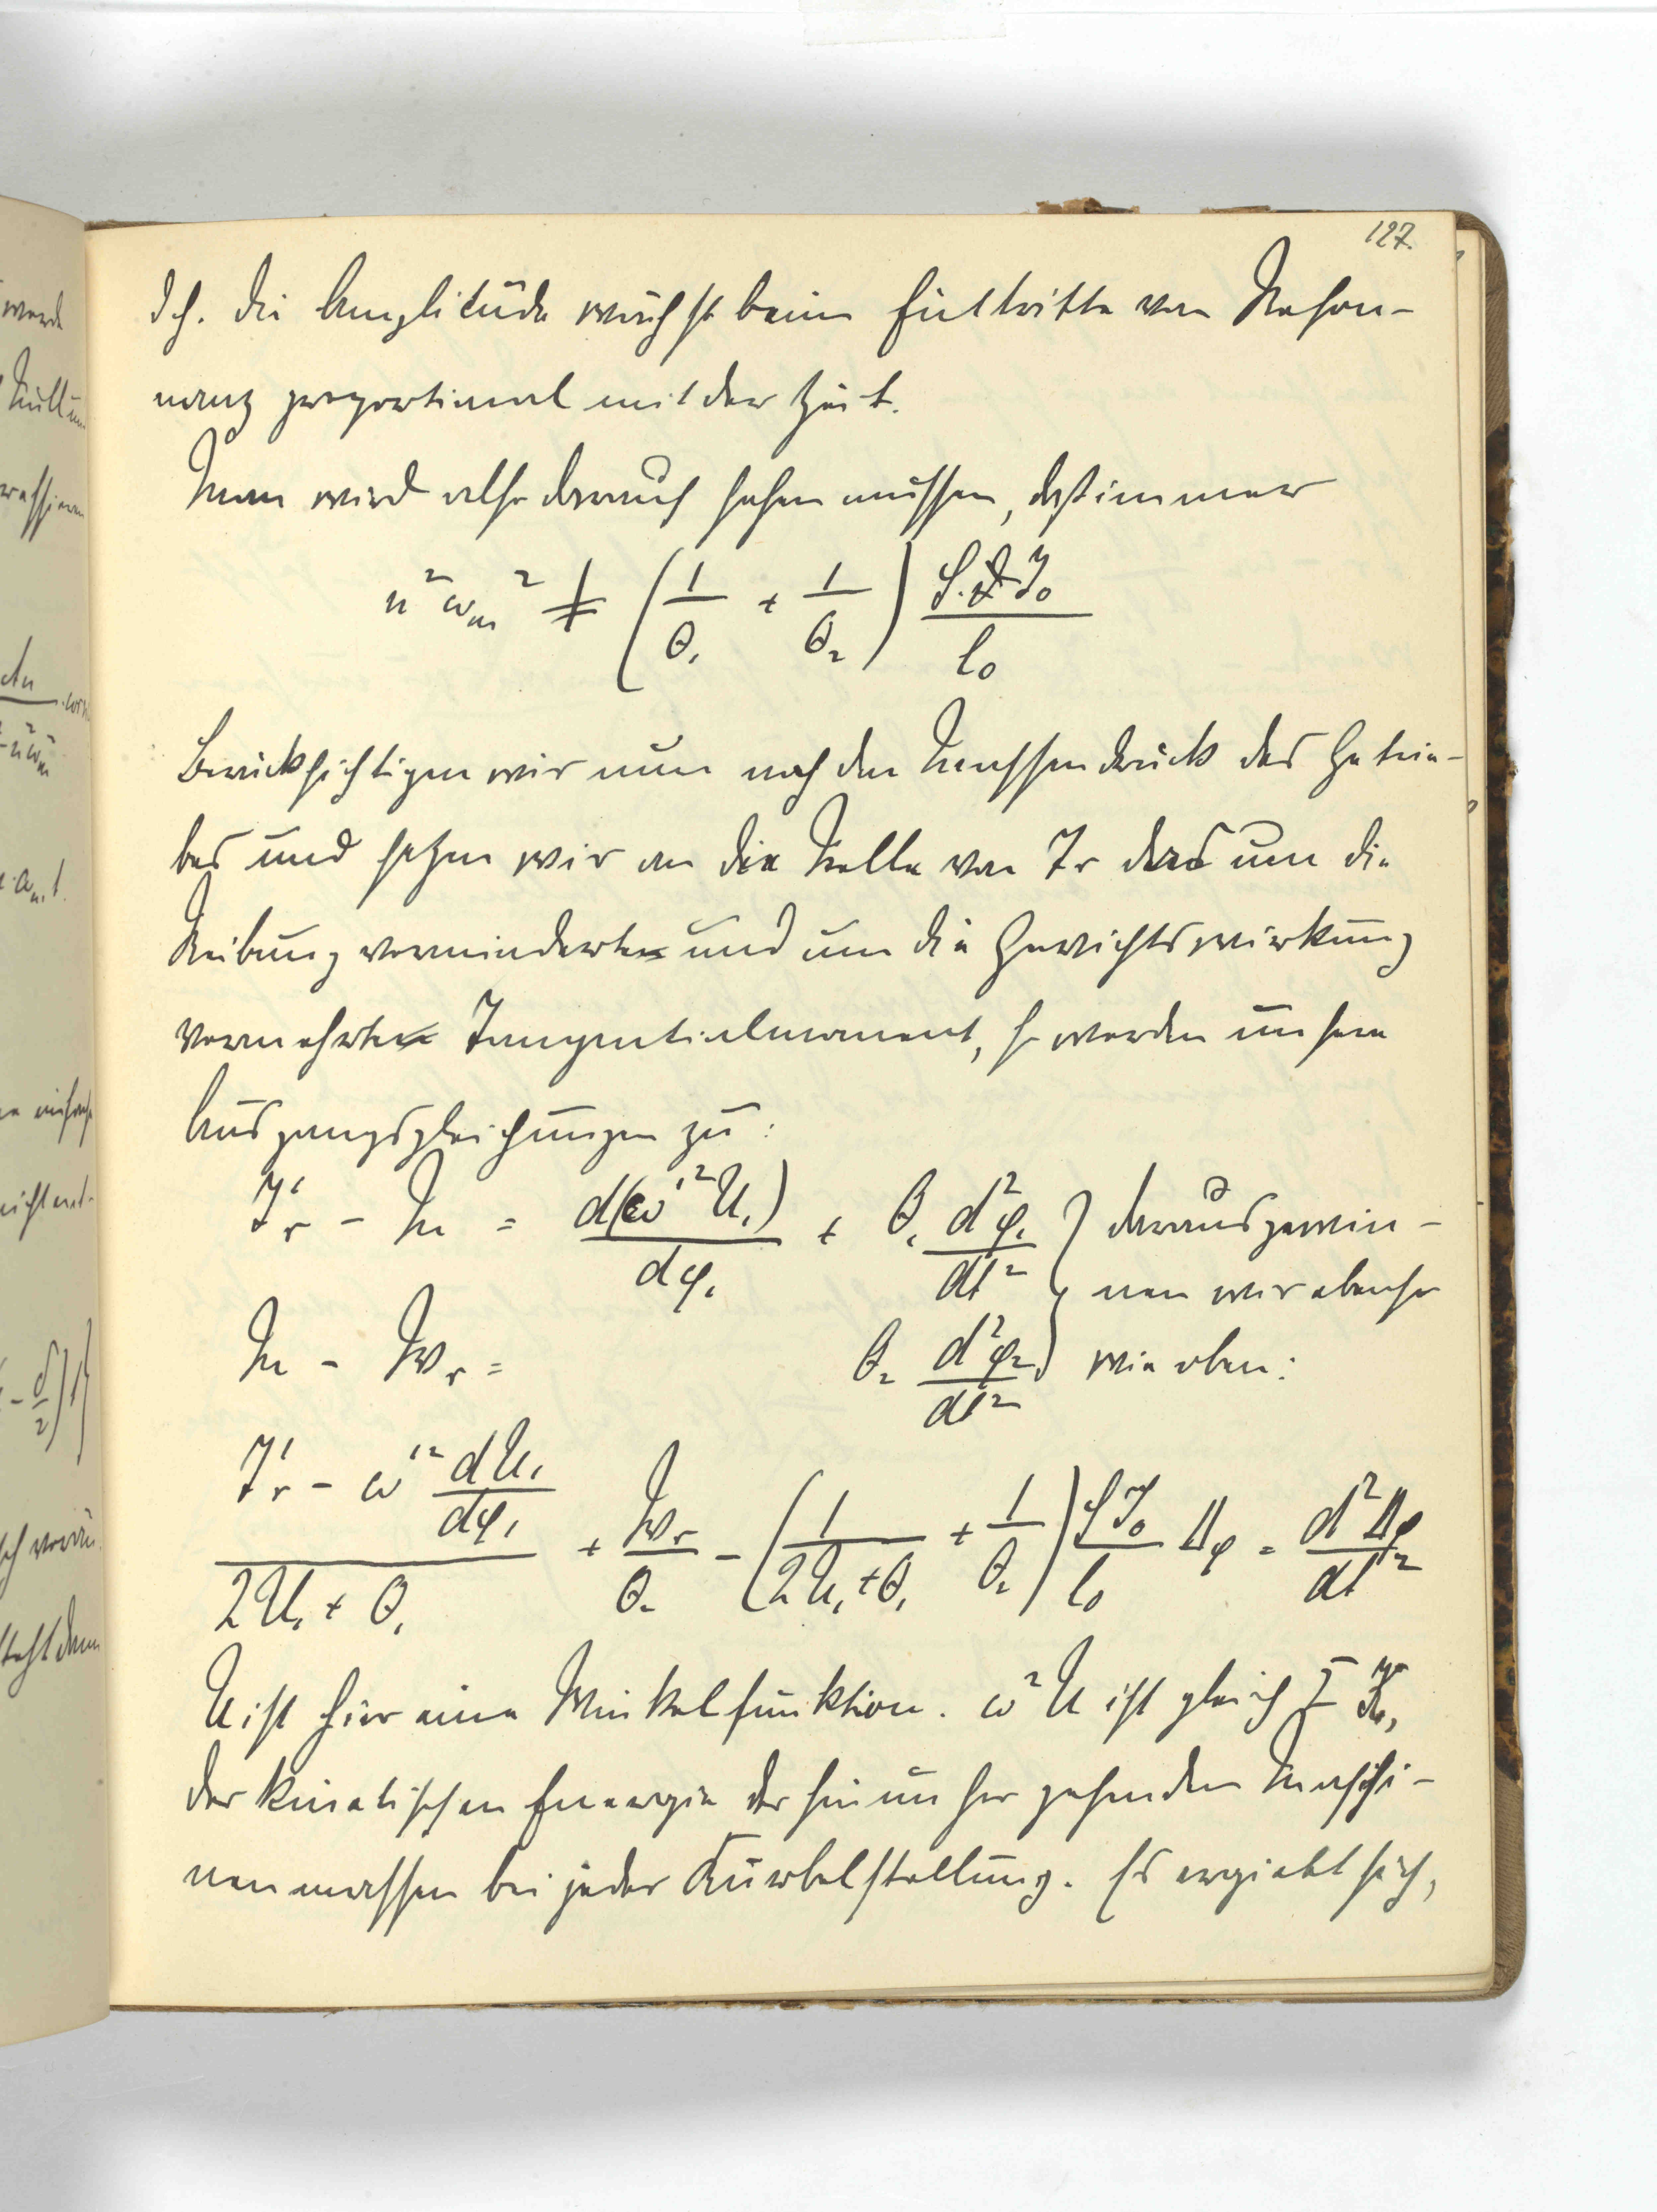 127.
d.h. die Amplitüde wächst beim Eintritte von Reson-
nanz proportional mit der Zeit.
Man wird also darauf sehen müssen, daß immer
n² ω_m² ≠ (1/θ₁ + 1/θ₂) G.J₀/l₀
Berücksichtigen wir nun noch den Massendruck des Getrie-
bes und setzen wir an die Stelle von Tr das um die
Reibung verminderte und um die Gewichtswirkung
vermehrte Tangentialmoment, so werden unsere
Ausgangsgleichungen zu:
T'r - M = d(ω'² U₁)/dφ₁ + θ₁ d²φ₁/dt² } daraus gewin-
nen wir ebenso
M - Wr = θ₂ d²φ₂/dt² } wie oben:
(T'r - ω'² dU₁/dφ₁)/(2U₁ + θ₁) + Wr/θ₂ - (1/(2U₁ + θ₁) + 1/θ₂) GJ₀/l₀ Δφ = d²Δφ/dt²
U ist hier eine Winkelfunktion. ω² U ist gleich
der kinetischen Energie der hin un her gehenden Maschi-
nenmassen bei jeder Kurbelstellung. Es ergiebt sich,